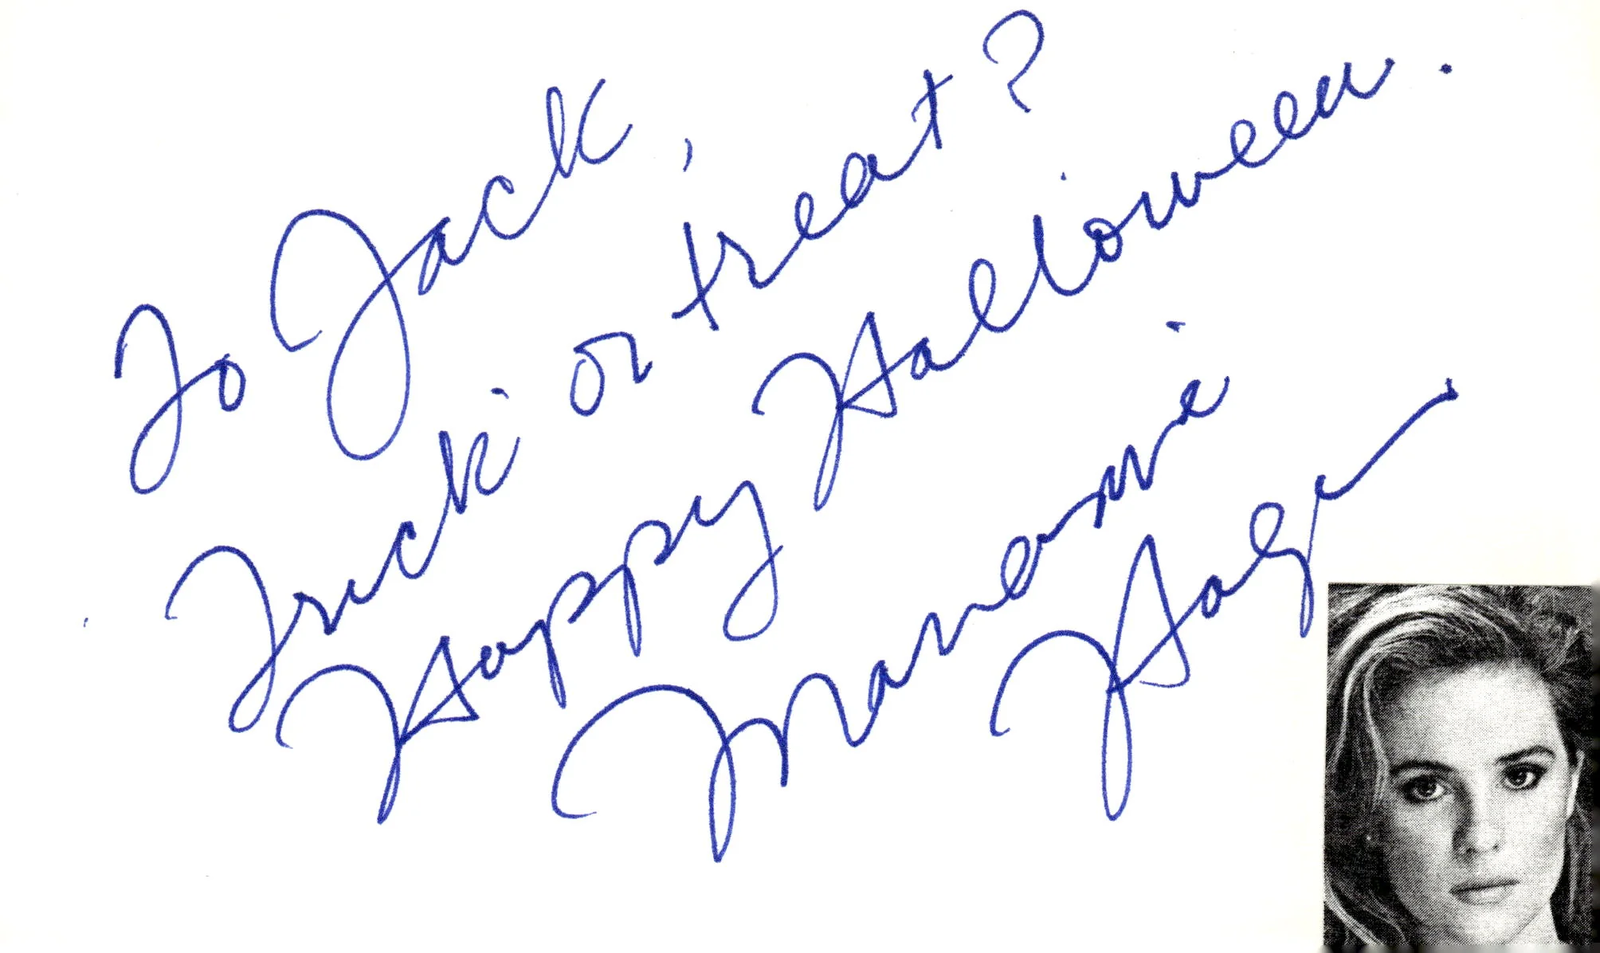 To Jack,
Trick or treat?
Happy Halloween.
Marianne
Hagan